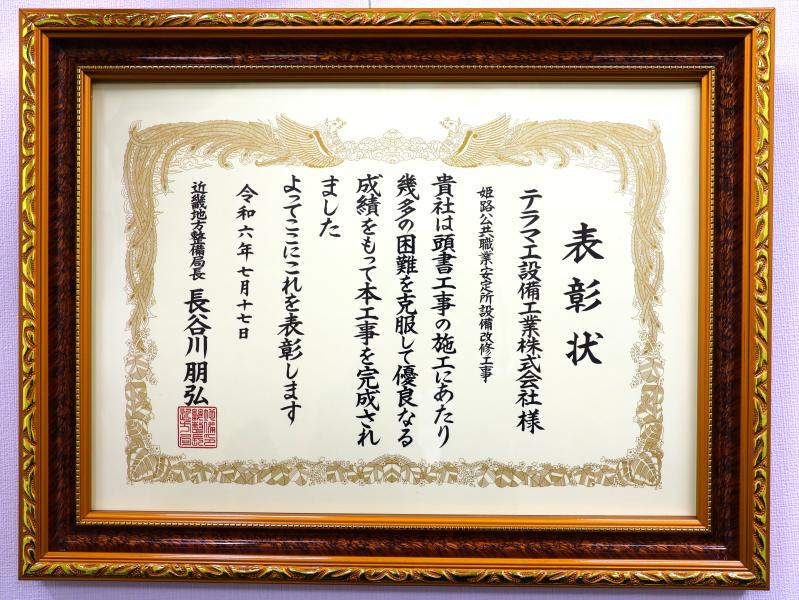 表彰状
テラマエ設備工業株式会社様
姫路公共職業安定所設備改修工事
貴社は頭書工事の施工にあたり
幾多の困難を克服して優良なる
成績をもって本工事を完成され
ました
よってここにこれを表彰します
令和六年七月十七日
近畿地方整備局長 長谷川朋弘